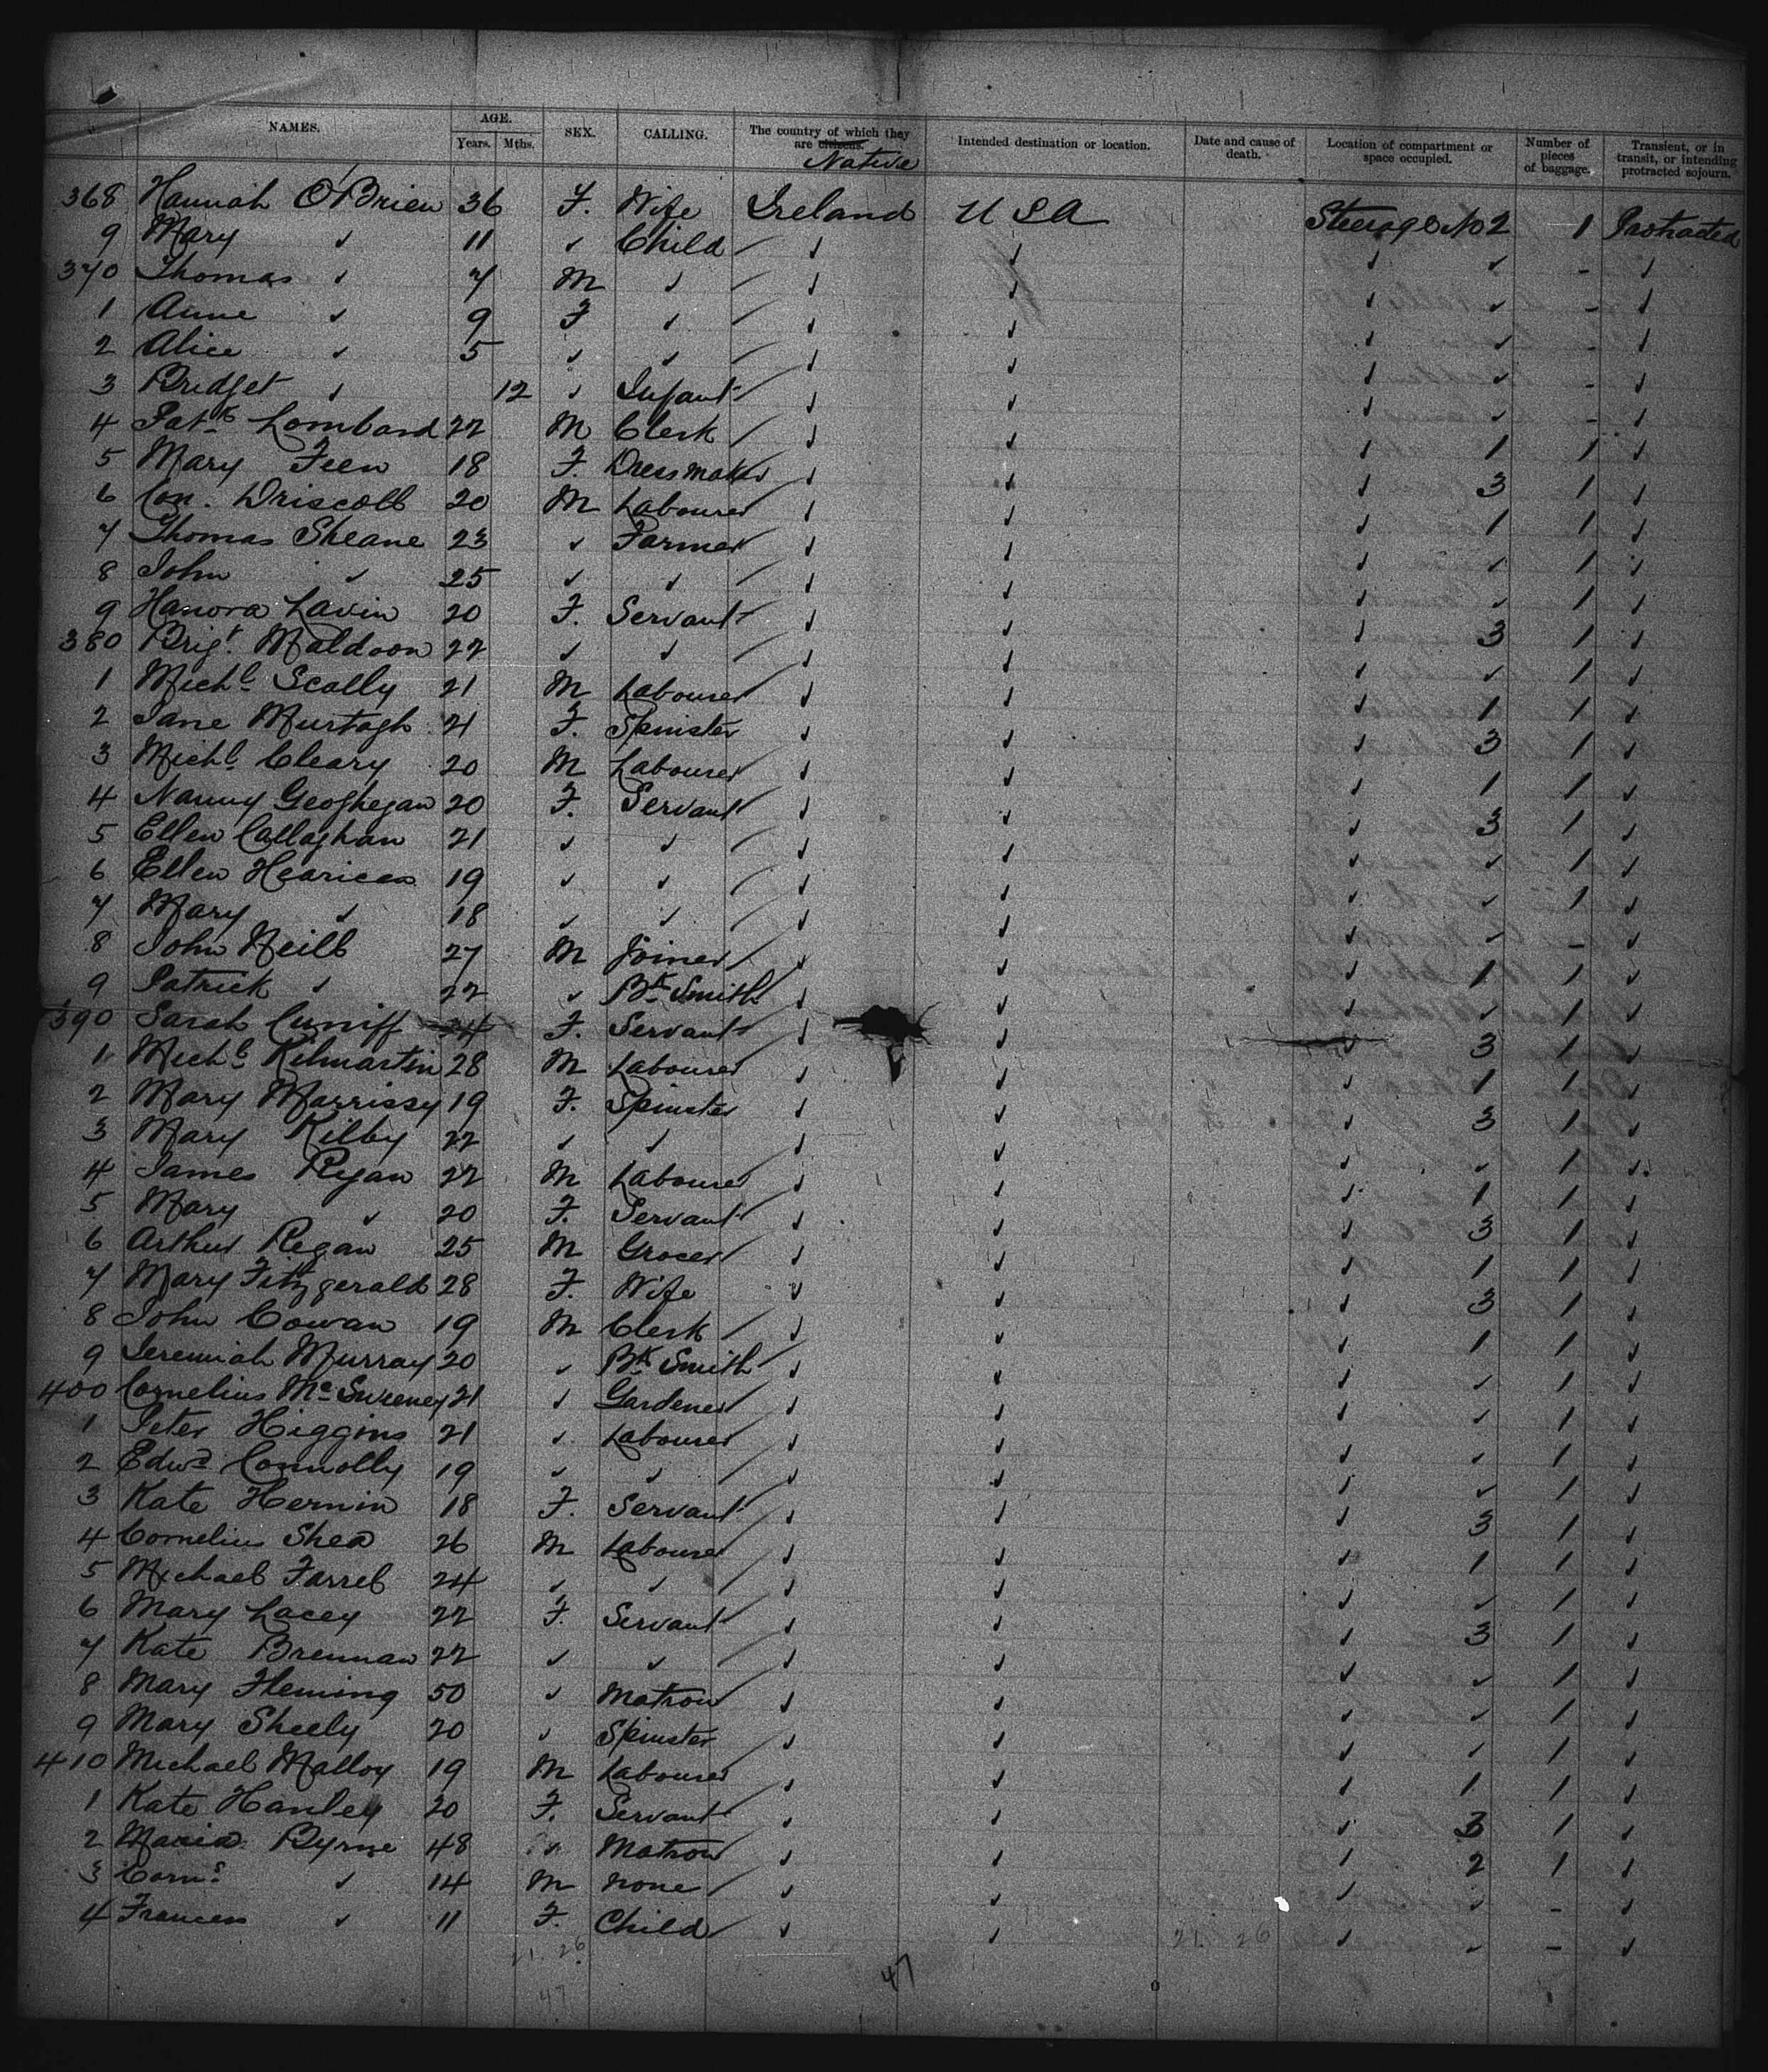 NAMES. AGE. Years. Mths. SEX. CALLING. The country of which they are citizens. Native Intended destination or location. Date and cause of death. Location of compartment or space occupied. Number of pieces of baggage. Transient, or in transit, or intending protracted sojourn.
368 Hannah O'Brien 36 F. Wife Ireland U S A Steerage No 2 1 Protracted
9 Mary ✓ 11 ✓ Child ✓ ✓ ✓ ✓ - ✓
370 Thomas ✓ 7 M ✓ ✓ ✓ ✓ ✓ - ✓
1 Anne ✓ 9 F ✓ ✓ ✓ ✓ ✓ - ✓
2 Alice ✓ 5 ✓ ✓ ✓ ✓ ✓ ✓ - ✓
3 Bridget ✓ 12 ✓ Infant ✓ ✓ ✓ ✓ - ✓
4 Patk Lombard 22 M Clerk ✓ ✓ ✓ 1 1 ✓
5 Mary Feen 18 F. Dressmaker ✓ ✓ ✓ 3 1 ✓
6 Con. Driscoll 20 M Labourer ✓ ✓ ✓ 1 1 ✓
7 Thomas Sheane 23 ✓ Farmer ✓ ✓ ✓ ✓ 1 ✓
8 John ✓ 25 ✓ ✓ ✓ ✓ ✓ ✓ 1 ✓
9 Hanora Lavin 20 F. Servant ✓ ✓ ✓ 3 1 ✓
380 Brigt. Maldoon 22 ✓ ✓ ✓ ✓ ✓ ✓ 1 ✓
1 Michl Scally 21 M Labourer ✓ ✓ ✓ 1 1 ✓
2 Jane Murtagh 21 F. Spinster ✓ ✓ ✓ 3 1 ✓
3 Michl Cleary 20 M Labourer ✓ ✓ ✓ 1 1 ✓
4 Nanny Geoghegan 20 F. Servant ✓ ✓ ✓ 3 1 ✓
5 Ellen Callaghan 21 ✓ ✓ ✓ ✓ ✓ ✓ 1 ✓
6 Ellen 19 ✓ ✓ ✓ ✓ ✓ ✓ 1 ✓
7 Mary ✓ 18 ✓ ✓ ✓ ✓ ✓ ✓ - ✓
8 John Neill 27 M Joiner ✓ ✓ ✓ 1 1 ✓
9 Patrick ✓ 22 ✓ Bk Smith ✓ ✓ ✓ ✓ 1 ✓
390 Sarah Cuniff 24 F. Servant ✓ ✓ ✓ 3 1 ✓
1 Michl Kilmartin 28 M Labourer ✓ ✓ ✓ 1 1 ✓
2 Mary Marrissy 19 F. Spinster ✓ ✓ ✓ 3 1 ✓
3 Mary Kilby 22 ✓ ✓ ✓ ✓ ✓ ✓ 1 ✓
4 James Ryan 22 M Labourer ✓ ✓ ✓ 1 1 ✓
5 Mary ✓ 20 F. Servant ✓ ✓ ✓ 3 1 ✓
6 Arthur Regan 25 M Grocer ✓ ✓ ✓ 1 1 ✓
7 Mary Fitzgerald 28 F. Wife ✓ ✓ ✓ 3 1 ✓
8 John Cowan 19 M Clerk ✓ ✓ ✓ 1 1 ✓
9 Jeremiah Murray 20 ✓ Bk Smith ✓ ✓ ✓ ✓ 1 ✓
400 Cornelius Mc Sweeney 21 ✓ Gardener ✓ ✓ ✓ ✓ 1 ✓
1 Peter Higgins 21 ✓ Labourer ✓ ✓ ✓ ✓ 1 ✓
2 Edwd Connolly 19 ✓ ✓ ✓ ✓ ✓ ✓ 1 ✓
3 Kate Hernin 18 F. Servant ✓ ✓ ✓ 3 1 ✓
4 Cornelius Shea 26 M Labourer ✓ ✓ ✓ 1 1 ✓
5 Michael Farrel 24 ✓ ✓ ✓ ✓ ✓ ✓ 1 ✓
6 Mary Lacey 22 F. Servant ✓ ✓ ✓ 3 1 ✓
7 Kate Brennan 22 ✓ ✓ ✓ ✓ ✓ ✓ 1 ✓
8 Mary Fleming 50 ✓ Matron ✓ ✓ ✓ ✓ 1 ✓
9 Mary Sheely 20 ✓ Spinster ✓ ✓ ✓ ✓ 1 ✓
410 Michael Malloy 19 M Labourer ✓ ✓ ✓ 1 1 ✓
1 Kate Hanley 20 F. Servant ✓ ✓ ✓ 3 1 ✓
2 Maria Byrne 48 ✓ Matron ✓ ✓ ✓ 2 1 ✓
3 Corns ✓ 14 M None ✓ ✓ ✓ ✓ - ✓
4 Frances ✓ 11 F. Child ✓ ✓ ✓ ✓ - ✓
21. 26 21. 26
47 47